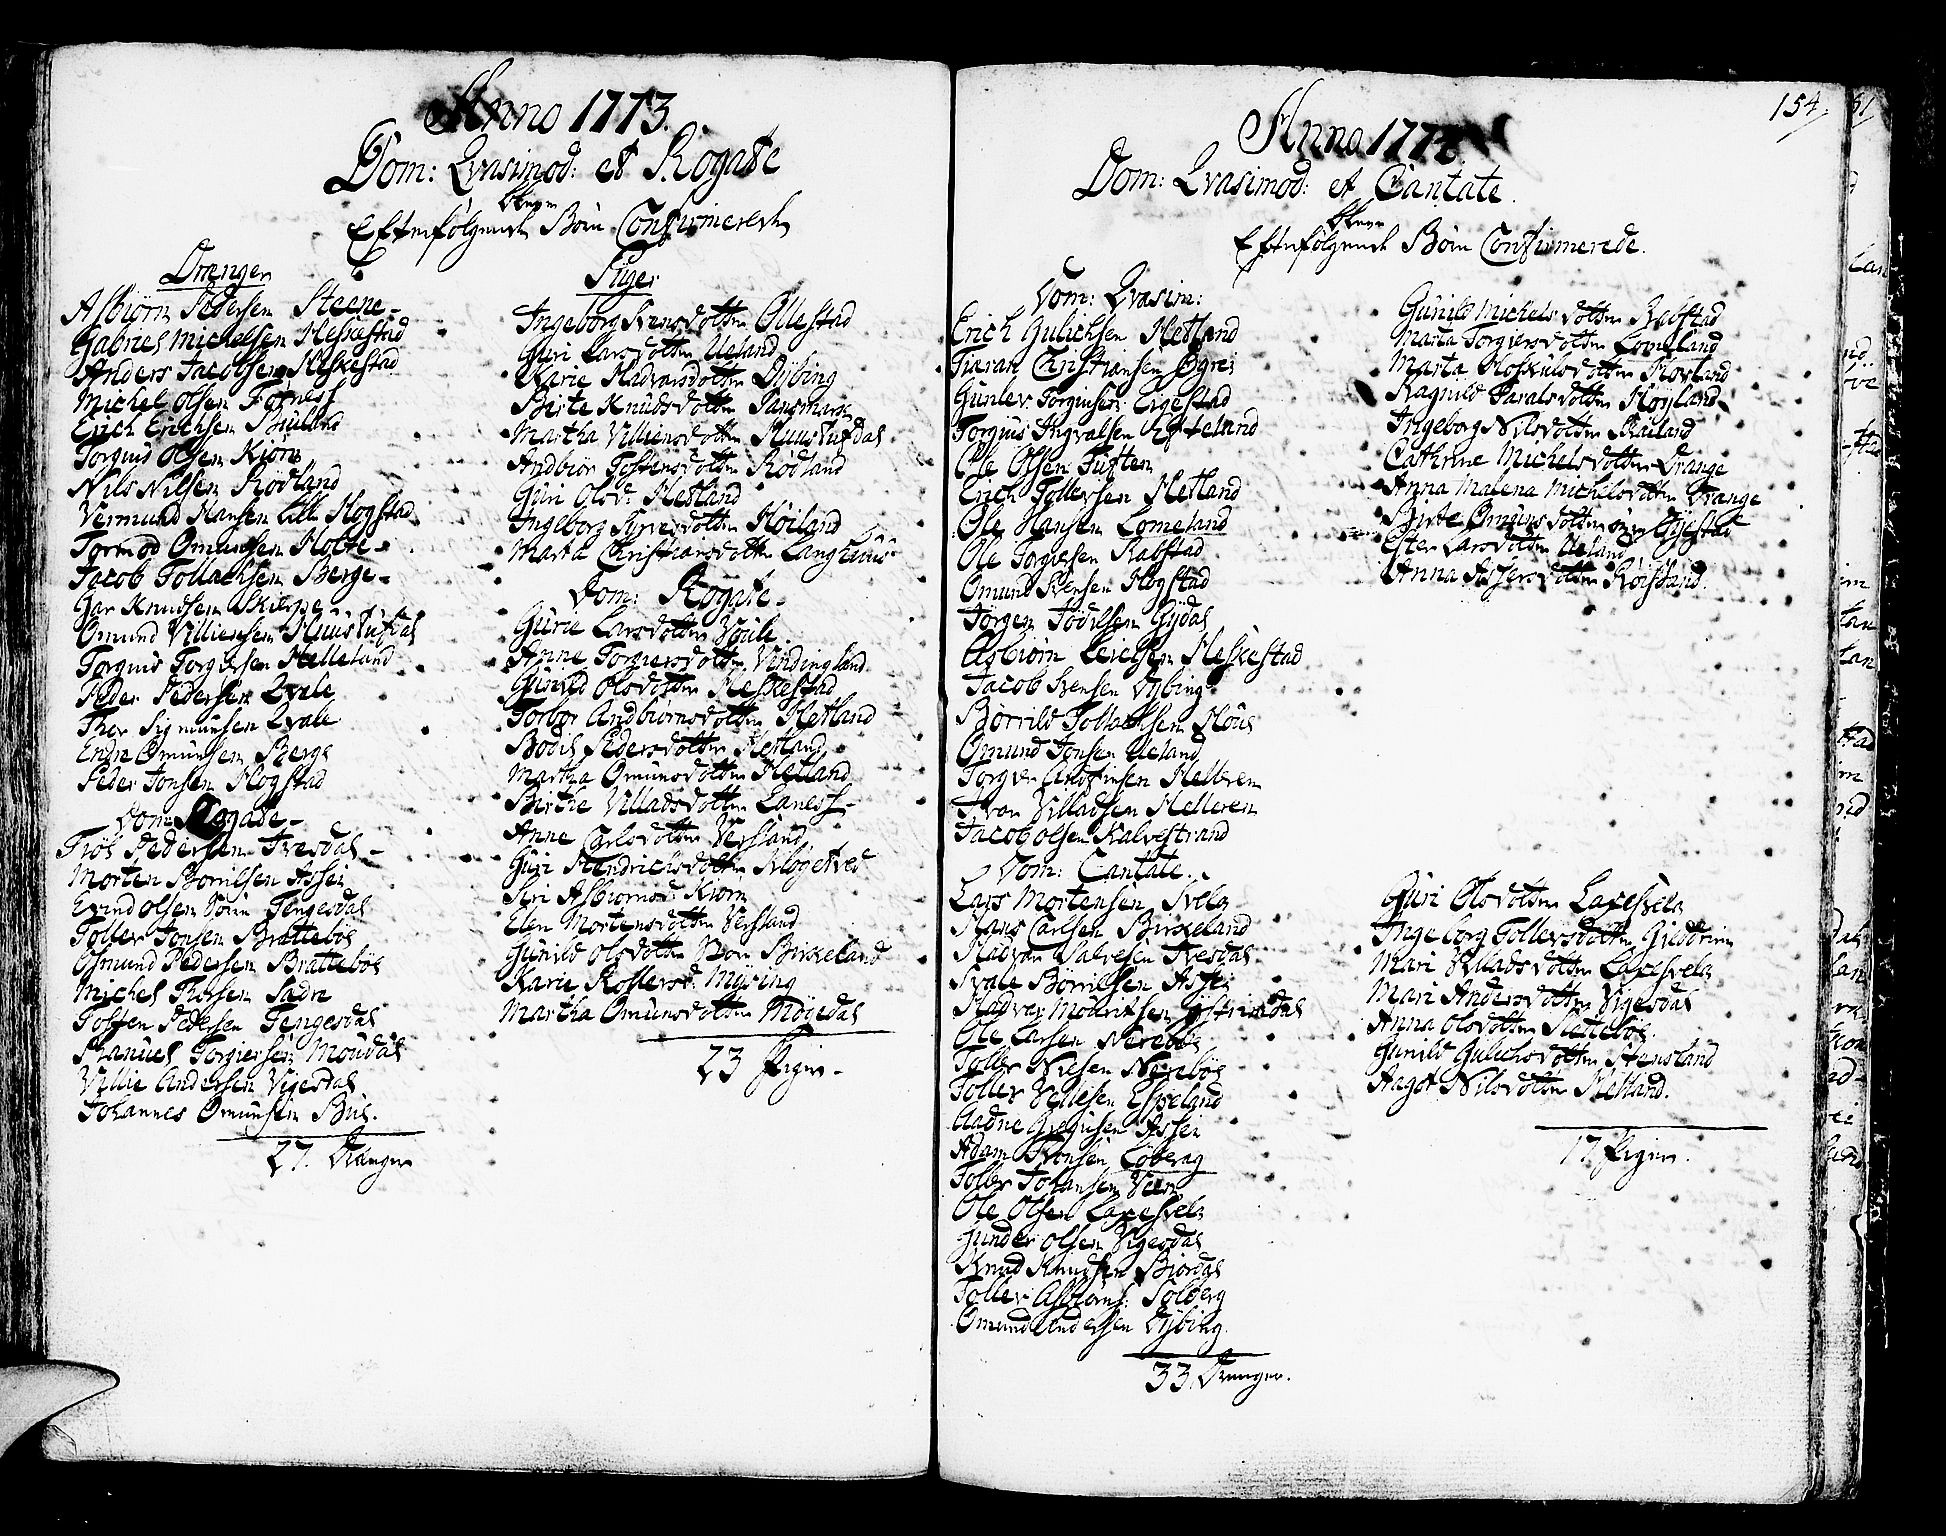 Anno 1773.
Dom: Qvasimod: et Rogate
bleve
Efterfølgende Børn Confirmerede
Drænger
Asbiørn Pedersen Steene
Gabriel Michelsen Heskestad
Anders Jacobsen Heskestad
Michel Olsen
Erich Erichsen
Torguis Olsen Kiørn
Nils Nilsen Rødland
Vermund Hansen Lille Høgstad
Tormod Omundsen Holte
Jacob Tollachsen Berge
Gar Knudsen Skierpe
Omund Villiemsen
Torguis Torgiersen Helleland
Peder Pedersen Qvale
Ther Sigmunsen Qvale
Enen Omunsen Berge
Peder Jonsen Høgstad
Dom: Rogate
Pedersen Ivesdal
Morten Børrilsen Assen
Evind Olsen Tengesdal
Toller Jonsen Bratteboe
Osmund Pedersen Bratteboe
Michel Thorsen Ladre
Tosten Pedersen Tengesdal
Torgiersen Moudal
Villie Andersen Vigesdal
Johannes Omunsen Bue.
27. Drænger
Piger
Ingeborg Svensdotter Ollestad
Guri Larsdotter Ueland
Karie Hadvarsdotter Dybing
Berte Knudsdotter
Martha Villiemsdotter
Andbiør Tostensdotter Rødland
Guri Olsd: Hetland
Ingeborg Høiland
Marta Christiansdotter
Dom: Rogate
Gurie Larsdotter
Anne Torgiersdotter Vindingland
Gunild Olsdotter Heskestad
Torbor Andbiørnsdotter Hetland
Bodil Pedersdotter Hetland
Martha Omunsdotter Hetland
Birthe Villadsdotter Laness
Anne Carlsdotter Versland
Guri Hendrichsdotter Klogetved
Siri Asbiørnsd: Kiørn
Elen Mortensdotter Versland
Gunild Olsdotter Birkeland
Karie Rollersd: Myring
Martha Omunsdotter Mögedal
23 Piger
154
Anno 1774
Dom: Qvasimod: et Cantate.
bleve
Efterfølgende Børn Confirmerede.
Dom: Qvasim:
Erich Gulichsen Hetland
Tiaran Christiansen Øgrei
Gunlev Torguisen Eigestad
Torguis Ingvalsen Efteland
Ole Olsen Tuften
Erich Tollevsen Hetland
Ole Hansen Lomeland
Ole Torgiersen Rabstad
Omund Svensen Høgstad
Jørgen Jodelsen Gydal
Asbiørn Leielsen Heskestad
Jacob Svensen Dybing
Børrild Tollachsen
Omund Jonsen Ueland
Torger Andersen Helleren
Ivar Villadsen Helleren
Jacob Olsen Kalvestrand
Dom: Cantate.
Lars Mortensen Svela
Hans Carlsen Birkeland
Hadvar Salvesen Ivesdal
Svale Børrilsen Assen
Hadver Mouritsen Østrimdal
Ole Larsen Nereboe
Toller Nielsen Nereboe
Toller Vellesen Espeland
Aadne Greguisen Assen
Adam Ivonsen Løberg
Toller Johansen Veen
Ole Olsen Laxesvela
Gunder Olsen Vigesdal
Knud Knudsen Biordal
Toller Asbiørns: Solberg
Omund Andersen Dybing
33. Drænger.
Gunild Michelsdotter Rabstad
Marta Torgiersdotter Lomeland
Marta Hoskulsdotter Hovland
Ragnild Haralsdotter Høyland
Ingeborg Nilsdotter
Cathrine Michelsdotter Drange
Anna Malena Michelsdotter Drange
Birte Omunsdotter Øigestad
Ester Larsdotter Ueland
Anna Assersdotter Røisland
Guri Olsdotter Laxesvela
Ingeborg Tollersdotter
Mari Villadsdotter Laxesvela
Mari Andersdotter Vigesdal
Anna Olsdotter Netteboe
Gunild Gulichsdotter Stensland
Aagot Nilsdotter Hetland.
17 Piger.